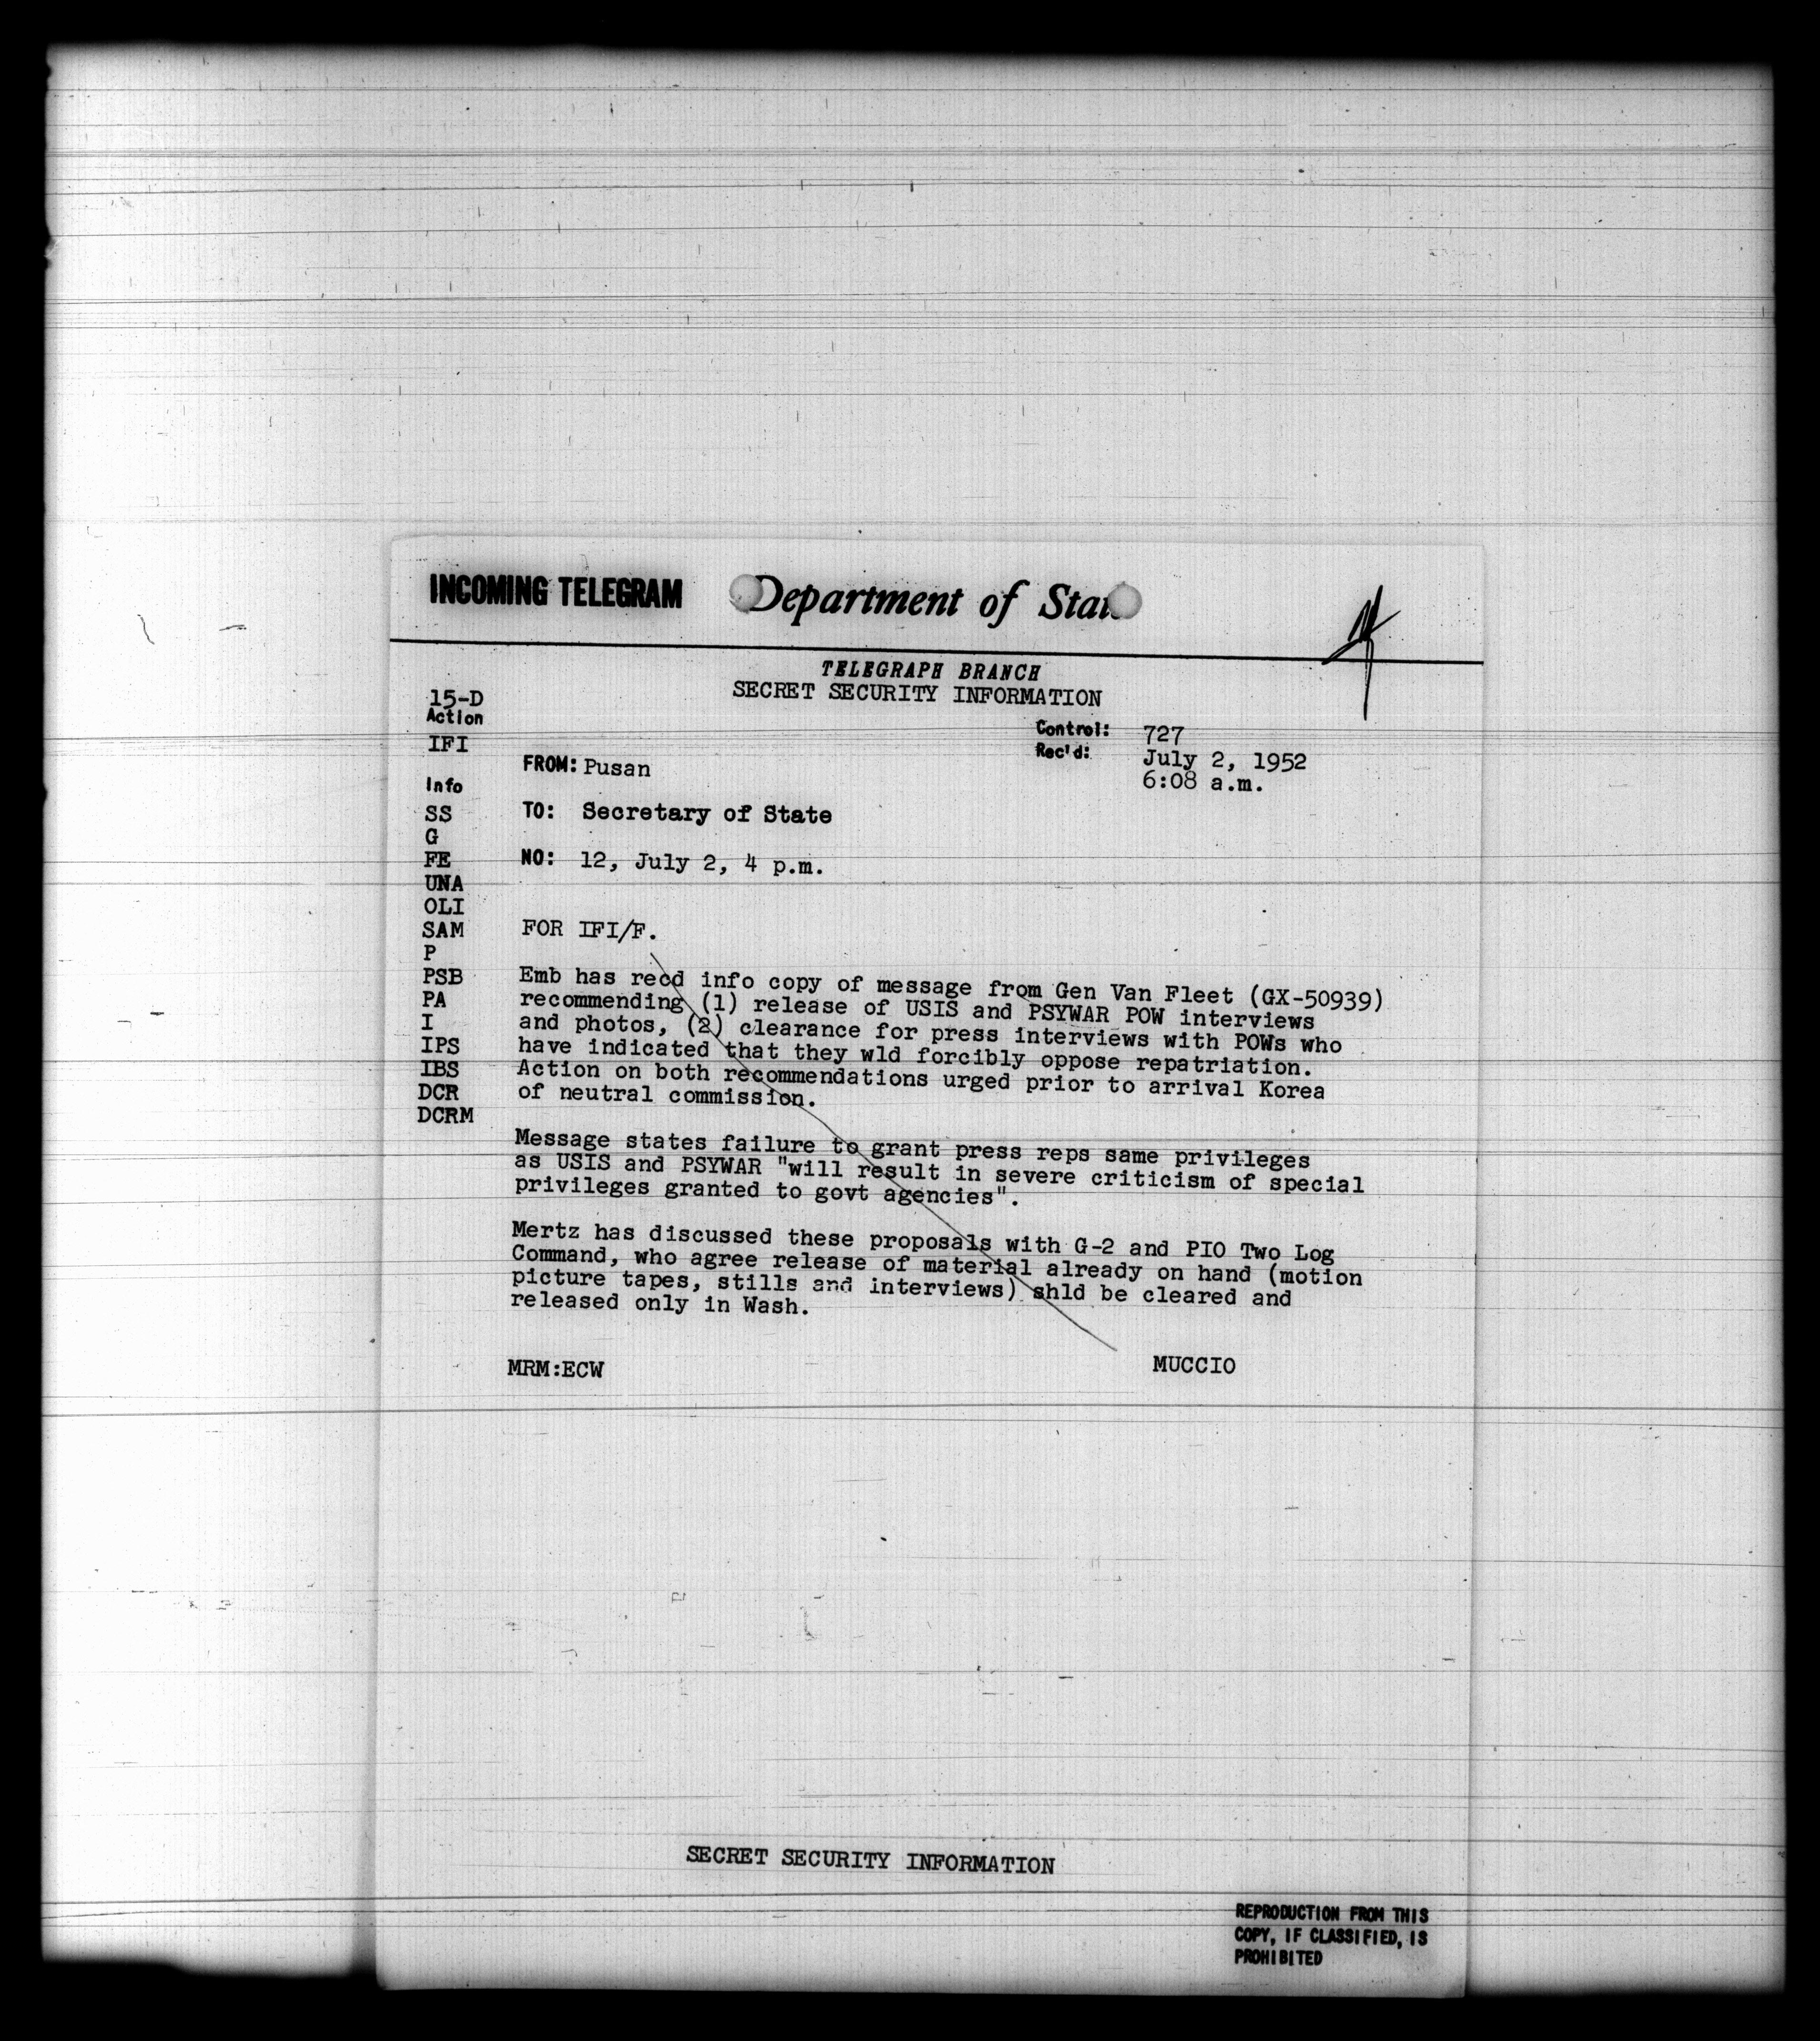 INCOMING TELEGRAM Department of Stat
TELEGRAPH BRANCH
SECRET SECURITY INFORMATION
15-D
Action
IFI
Control: 727
Rec'd: July 2, 1952
6:08 a.m.
FROM: Pusan
Info
SS
G
FE
UNA
OLI
SAM
P
PSB
PA
I
IPS
IBS
DCR
DCRM
TO: Secretary of State
NO: 12, July 2, 4 p.m.
FOR IFI/F.
Emb has recd info copy of message from Gen Van Fleet (GX-50939)
recommending (1) release of USIS and PSYWAR POW interviews
and photos, (2) clearance for press interviews with POWs who
have indicated that they wld forcibly oppose repatriation.
Action on both recommendations urged prior to arrival Korea
of neutral commission.
Message states failure to grant press reps same privileges
as USIS and PSYWAR "will result in severe criticism of special
privileges granted to govt agencies".
Mertz has discussed these proposals with G-2 and PIO Two Log
Command, who agree release of material already on hand (motion
picture tapes, stills and interviews) shld be cleared and
released only in Wash.
MRM:ECW MUCCIO
SECRET SECURITY INFORMATION
REPRODUCTION FROM THIS
COPY, IF CLASSIFIED, IS
PROHIBITED